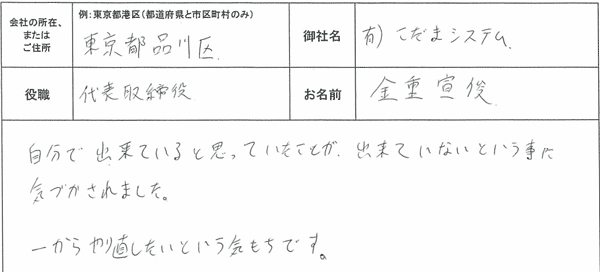 会社の所在、
または
ご住所
例:東京都港区(都道府県と市区町村のみ)
東京都品川区
御社名
有)こだまシステム
役職
代表取締役
お名前
金重宣俊
自分で出来ていると思っていたことが、出来ていないという事に
気づかされました。
一からやり直したいという気もちです。